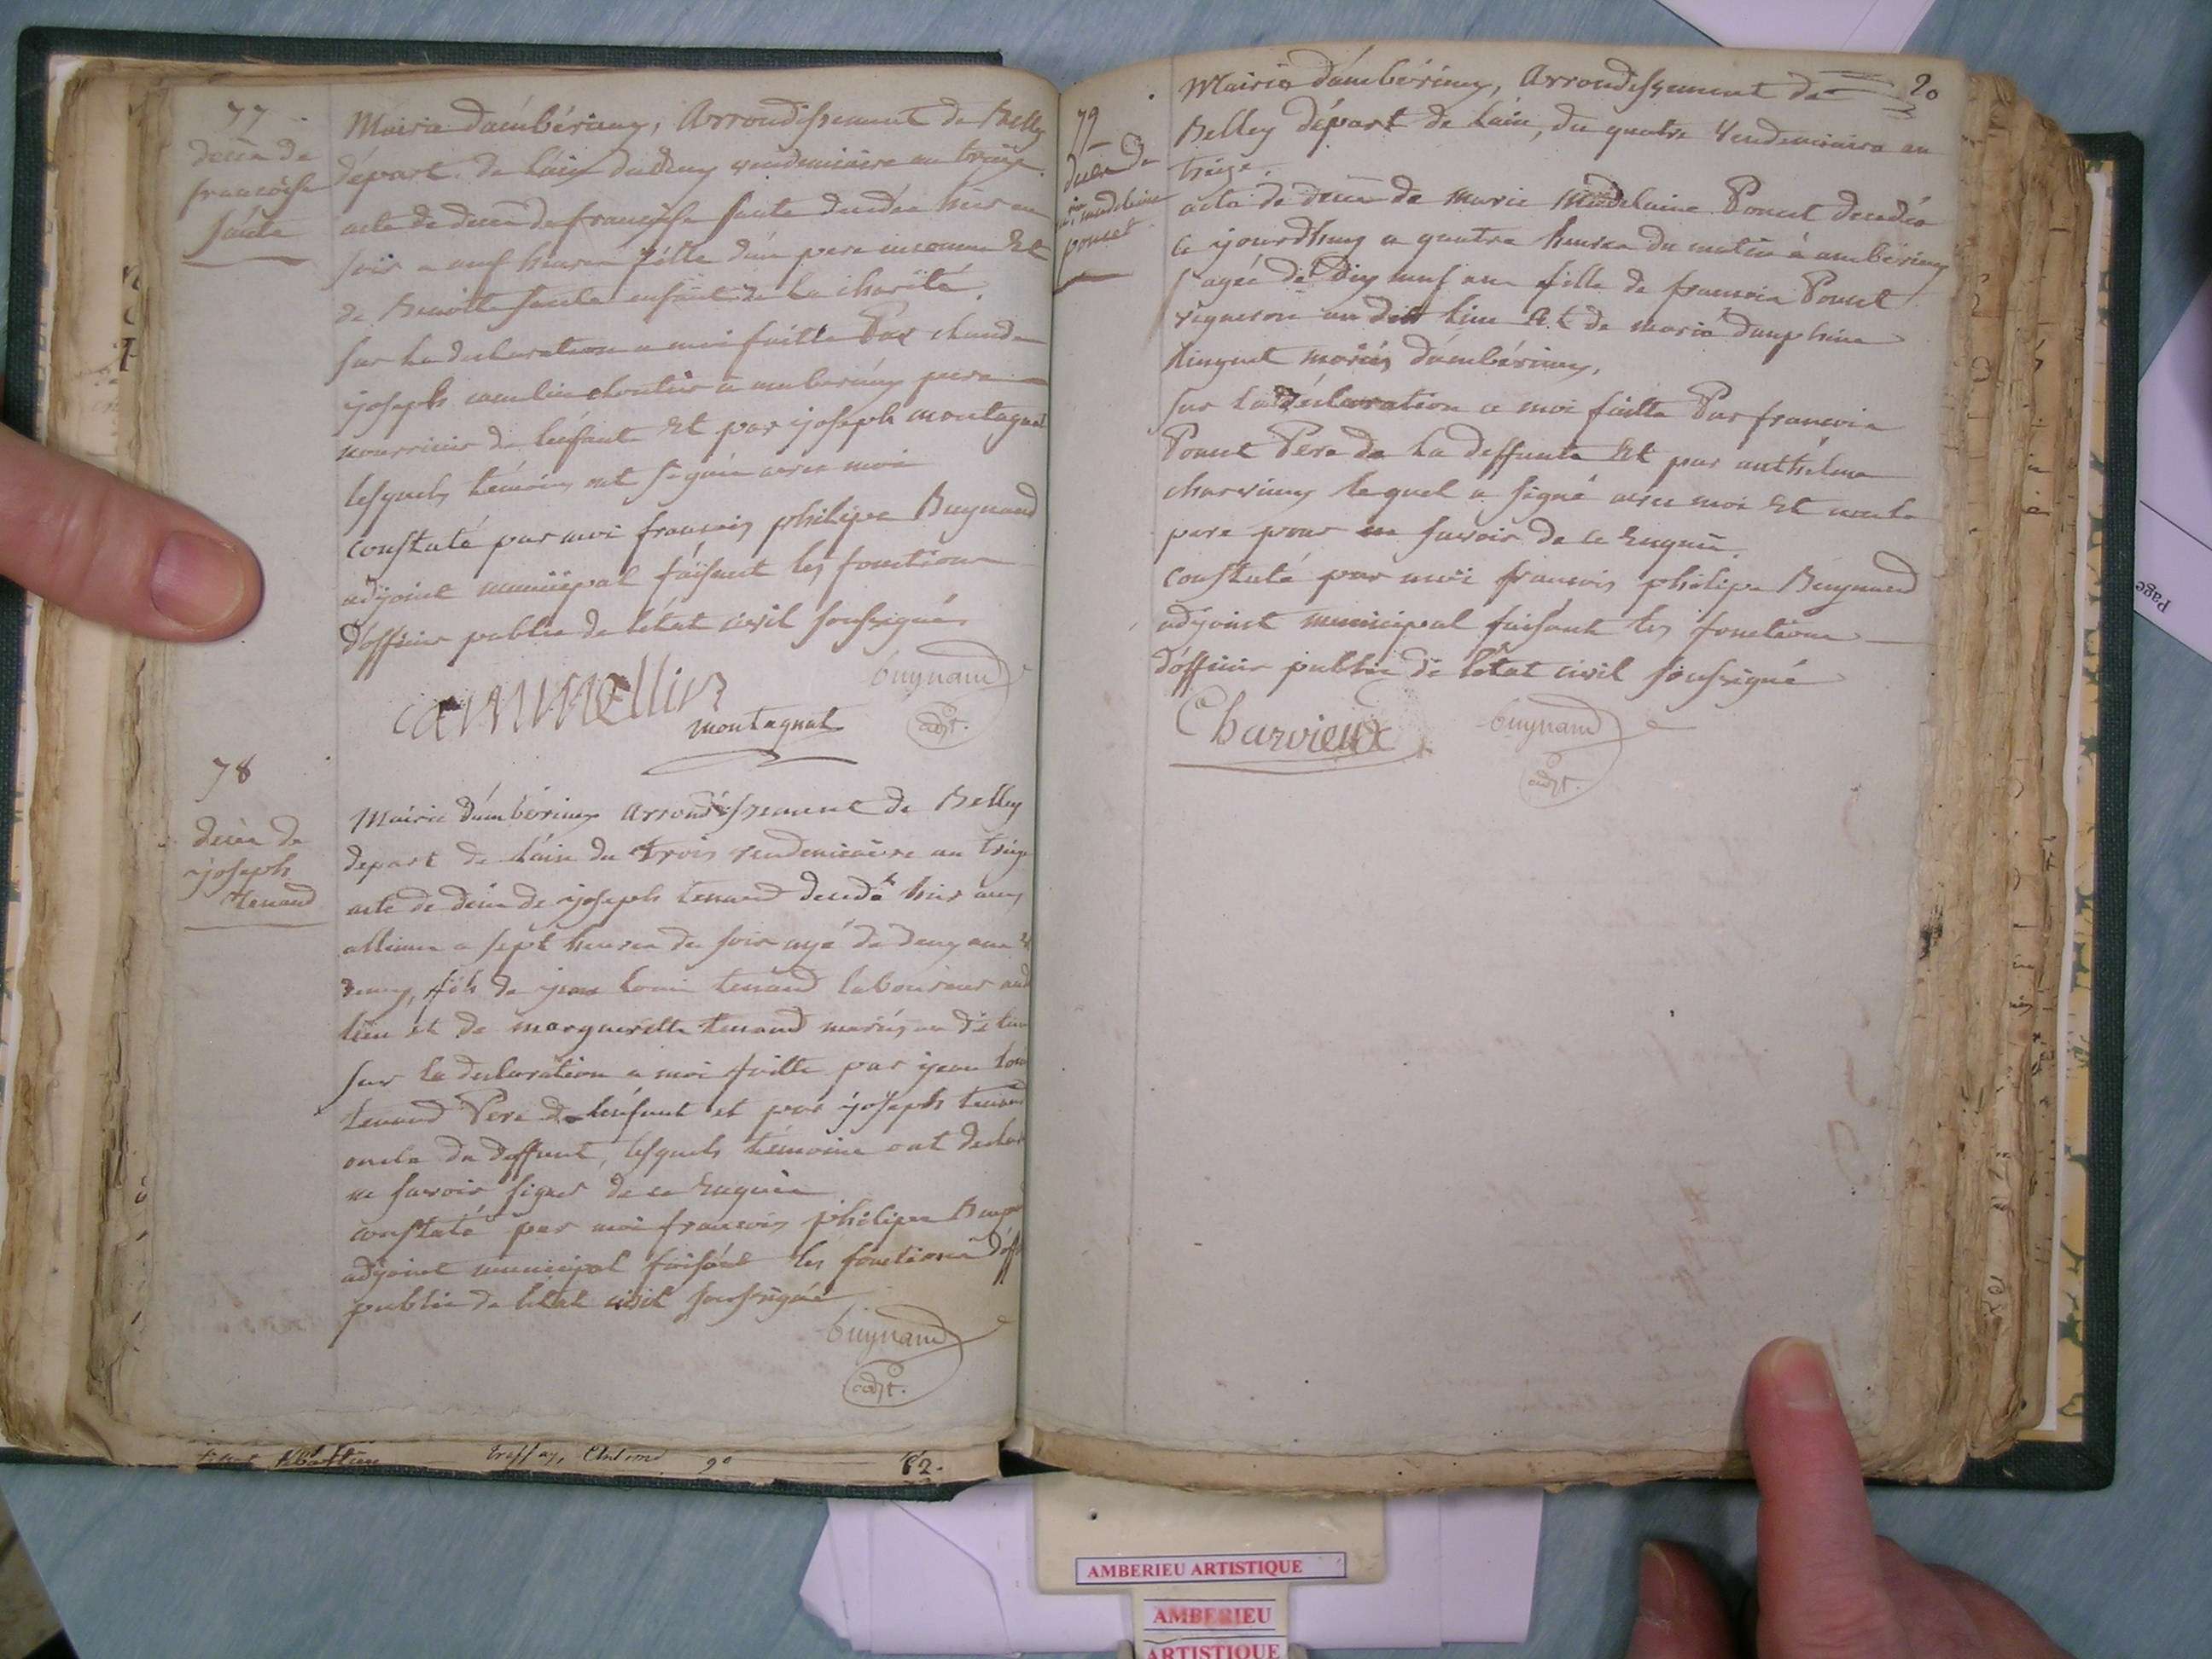 77
decès de
francoise
saute
Mairie dámbérieux, Arrondissement de Belley
départ. de láin du deux vendemiaire an treize.
acte de decès de francoise saute decedée hier au
soir a neuf heures fille dún pere inconnu Et
de Benoitte saute enfant de la charité.
sur la declaration a moi faitte Par claude
joseph camelin cloutier a amberieux pere
nourricier de lenfant Et par joseph montagnat
lesquels témoins ont signés avec moi
constaté par moi francois philipe Buynand
adjoint municipal faisant les fonctions
dófficier public de létat civil soussigné.
cammellin
montagnat
buynand
adjt.
78
decès de
joseph
tenand
Mairie dámbérieux arrondissement de Belley
depart de láin du trois vendemiaire an treize
acte de decès de joseph tenand decedé hier aux
allimes a sept heures du soir agé de deux ans Et
demy, fils de jean louis tenand laboureur aud
lieu et de margueritte tenand mariés au dit lieu
sur la declaration a moi faitte par jean louis
tenand Pere de lenfant et par joseph tenand
oncle du deffunt, lesquels témoins ont declaré
ne savoir signer de ce Enquis
constaté par moi francois philipe Buynand
adjoint municipal faisant les fonctions dóff
public de létat civil soussigné
buynand
adjt.
20
79
decès de
madeleine
poncet
Mairie dámbérieux, Arrondissement de
Belley départ de láin, du quatre Vendemiaire an
treize.
acte de decès de marie Madelaine Poncet decedée
ce jourdhuy a quatre heures du matin à ambérieux
agée de dix neuf ans fille de francois Poncet
vigneron au dit lieu Et de marie dauphine
mariés dámbérieux.
sur la déclaration a moi faitte Par francois
Poncet Pere de la deffunte Et par anthelme
charvieux lequel a signé avec moi Et non le
pere pour ne savoir de ce Enquis.
constaté par moi francois philipe Buynand
adjoint municipal faisant les fonctions
dófficier public de létat civil soussigné
Charvieux
buynand
adjt.
90
82.
Page
AMBERIEU ARTISTIQUE
AMBERIEU
ARTISTIQUE